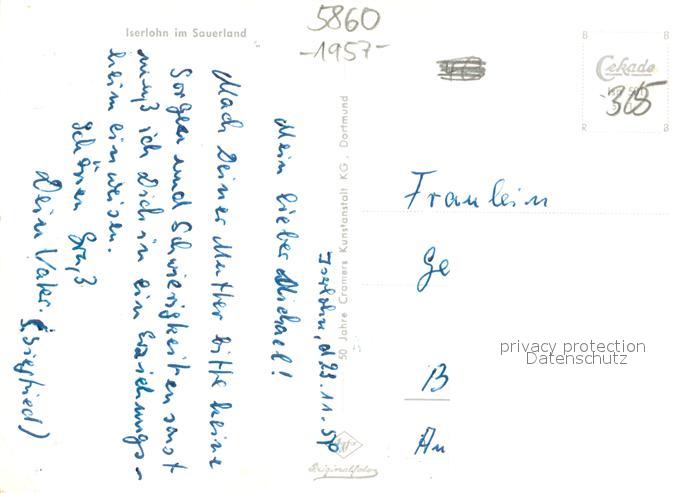 Iserlohn im Sauerland
5860
-1957-
Iserlohn, d 23.11.
Mein lieber Michael!
Mach Deiner Mutter bitte keine
Sorgen und Schwierigkeiten sonst
muß ich Dich in ein Erziehungs-
heim einweisen.
Schönen Gruß
Dein Vater.
(Siegfried)
50 Jahre Cramers Kunstanstalt KG, Dortmund
Agfa
Originalfoto
B B
Cekade
365
R B
Fraulein
Ge
privacy protection
Datenschutz
B
An